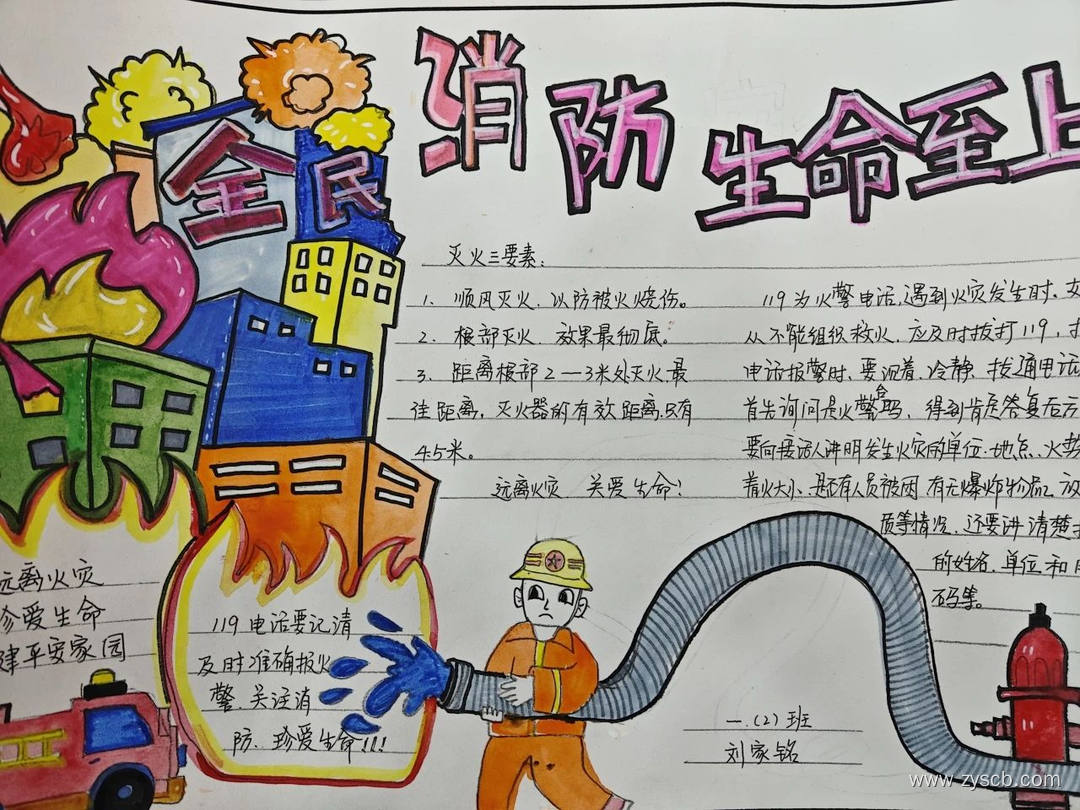 全民消防 生命至上
灭火三要素:
1. 顺风灭火,以防被火烧伤。
2. 根部灭火,效果最彻底。
3. 距离根部2—3米处灭火,最
佳距离,灭火器的有效距离只有
4.5米。
远离火灾 关爱生命!
119为火警电话,遇到火灾发生时,
从不能组织救火,应及时拔打119,
电话报警时,要沉着、冷静,拔通电话
首先询问是火警台吗,得到肯定答复后方
要向接话人讲明发生火灾的单位、地点、火势
着火大小、是否有人员被困,有无爆炸物品、
质等情况,还要讲清楚
的姓名、单位和
码等。
远离火灾
珍爱生命
建平安家园
119电话要记清
及时准确报火
警,关注消
防、珍爱生命!!!
一.(2)班
刘家铭
www.zyscb.com